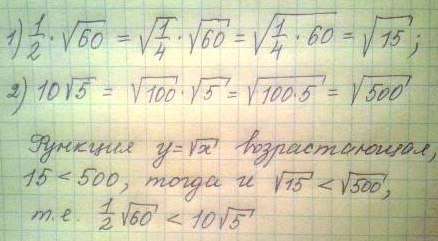 1) 1/2 · √60 = √1/4 · √60 = √1/4 · 60 = √15 ;
2) 10√5 = √100 · √5 = √100·5 = √500
Функция y=√x возрастающая,
15 < 500, тогда и √15 < √500,
т.е. 1/2 √60 < 10√5